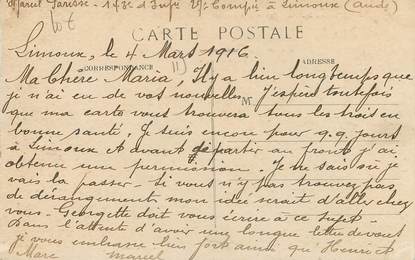 Marcel Parisse - 143e d'Infie 29e Compie à Limoux (Aude)
CARTE POSTALE
Limoux, le 4 Mars 1916
CORRESPONDANCE ADRESSE
Ma Chère Maria, Il y a bien longtemps que
je n'ai eu de vos nouvelles. J'espère toutefois
M
que ma carte vous trouvera tous les trois en
bonne santé. Je suis encore pour q.q. jours
à Limoux et avant de partir au front j'ai
obtenu une permission. Je ne sais si je
vais la passer - si vous n'y pas trouvez pas
de dérangements mon idée serait d'aller chez
vous - Georgette doit vous écrire à ce sujet -
Dans l'attente d'avoir une longue lettre de vous
je vous embrasse bien fort ainsi qu'Henri et
Marc Marcel